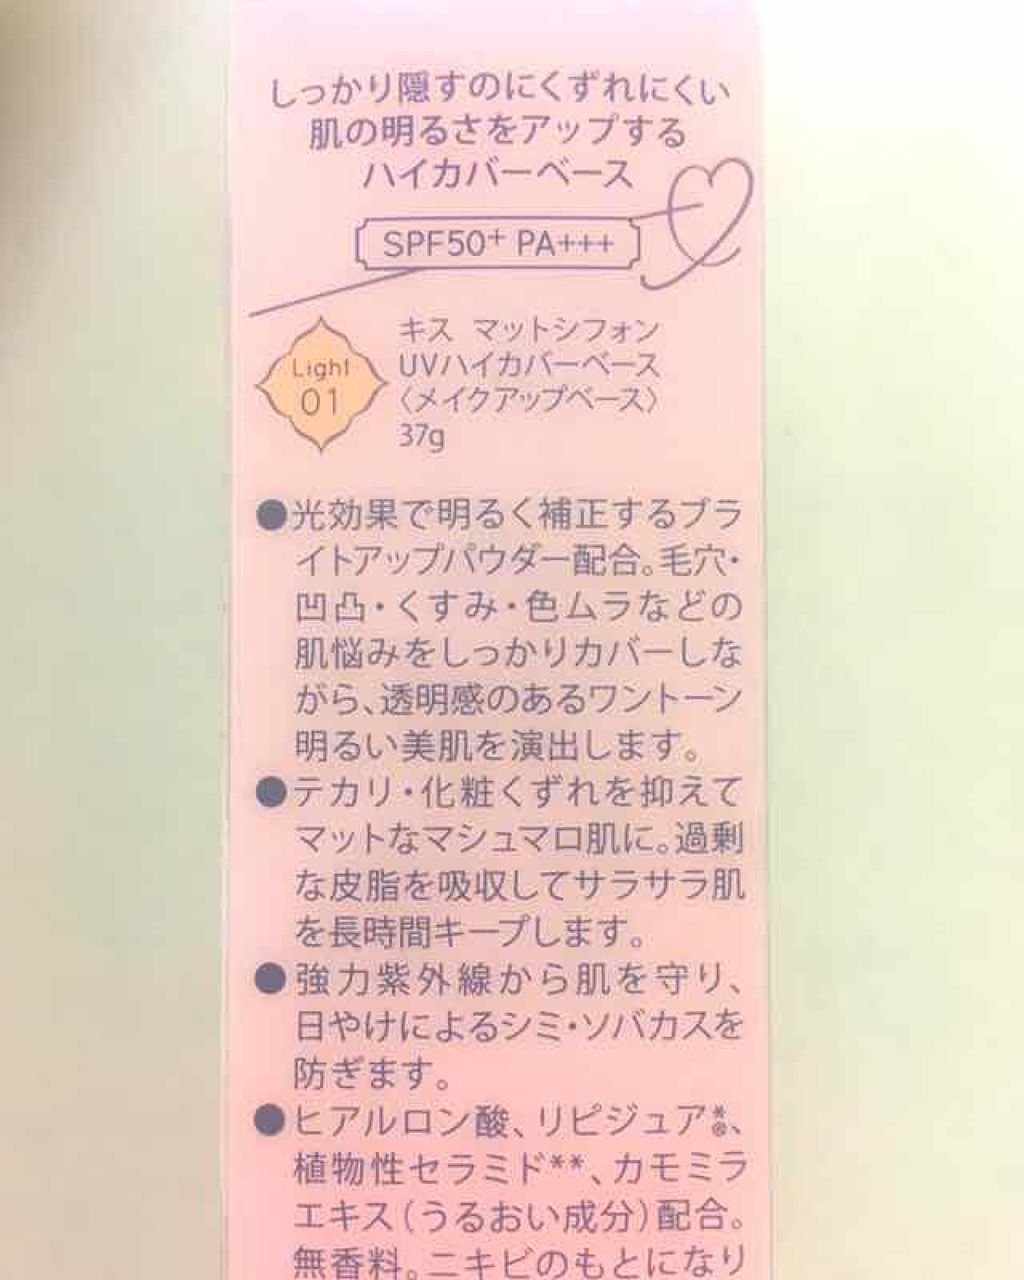 しっかり隠すのにくずれにくい
肌の明るさをアップする
ハイカバーベース
SPF50+ PA+++
Light
01
キス マットシフォン
UVハイカバーベース
〈メイクアップベース〉
37g
●光効果で明るく補正するブラ
イトアップパウダー配合。毛穴・
凹凸・くすみ・色ムラなどの
肌悩みをしっかりカバーしな
がら、透明感のあるワントーン
明るい美肌を演出します。
●テカリ・化粧くずれを抑えて
マットなマシュマロ肌に。過剰
な皮脂を吸収してサラサラ肌
を長時間キープします。
●強力紫外線から肌を守り、
日やけによるシミ・ソバカスを
防ぎます。
●ヒアルロン酸、リピジュア®*、
植物性セラミド**、カモミラ
エキス(うるおい成分)配合。
無香料。ニキビのもとになり